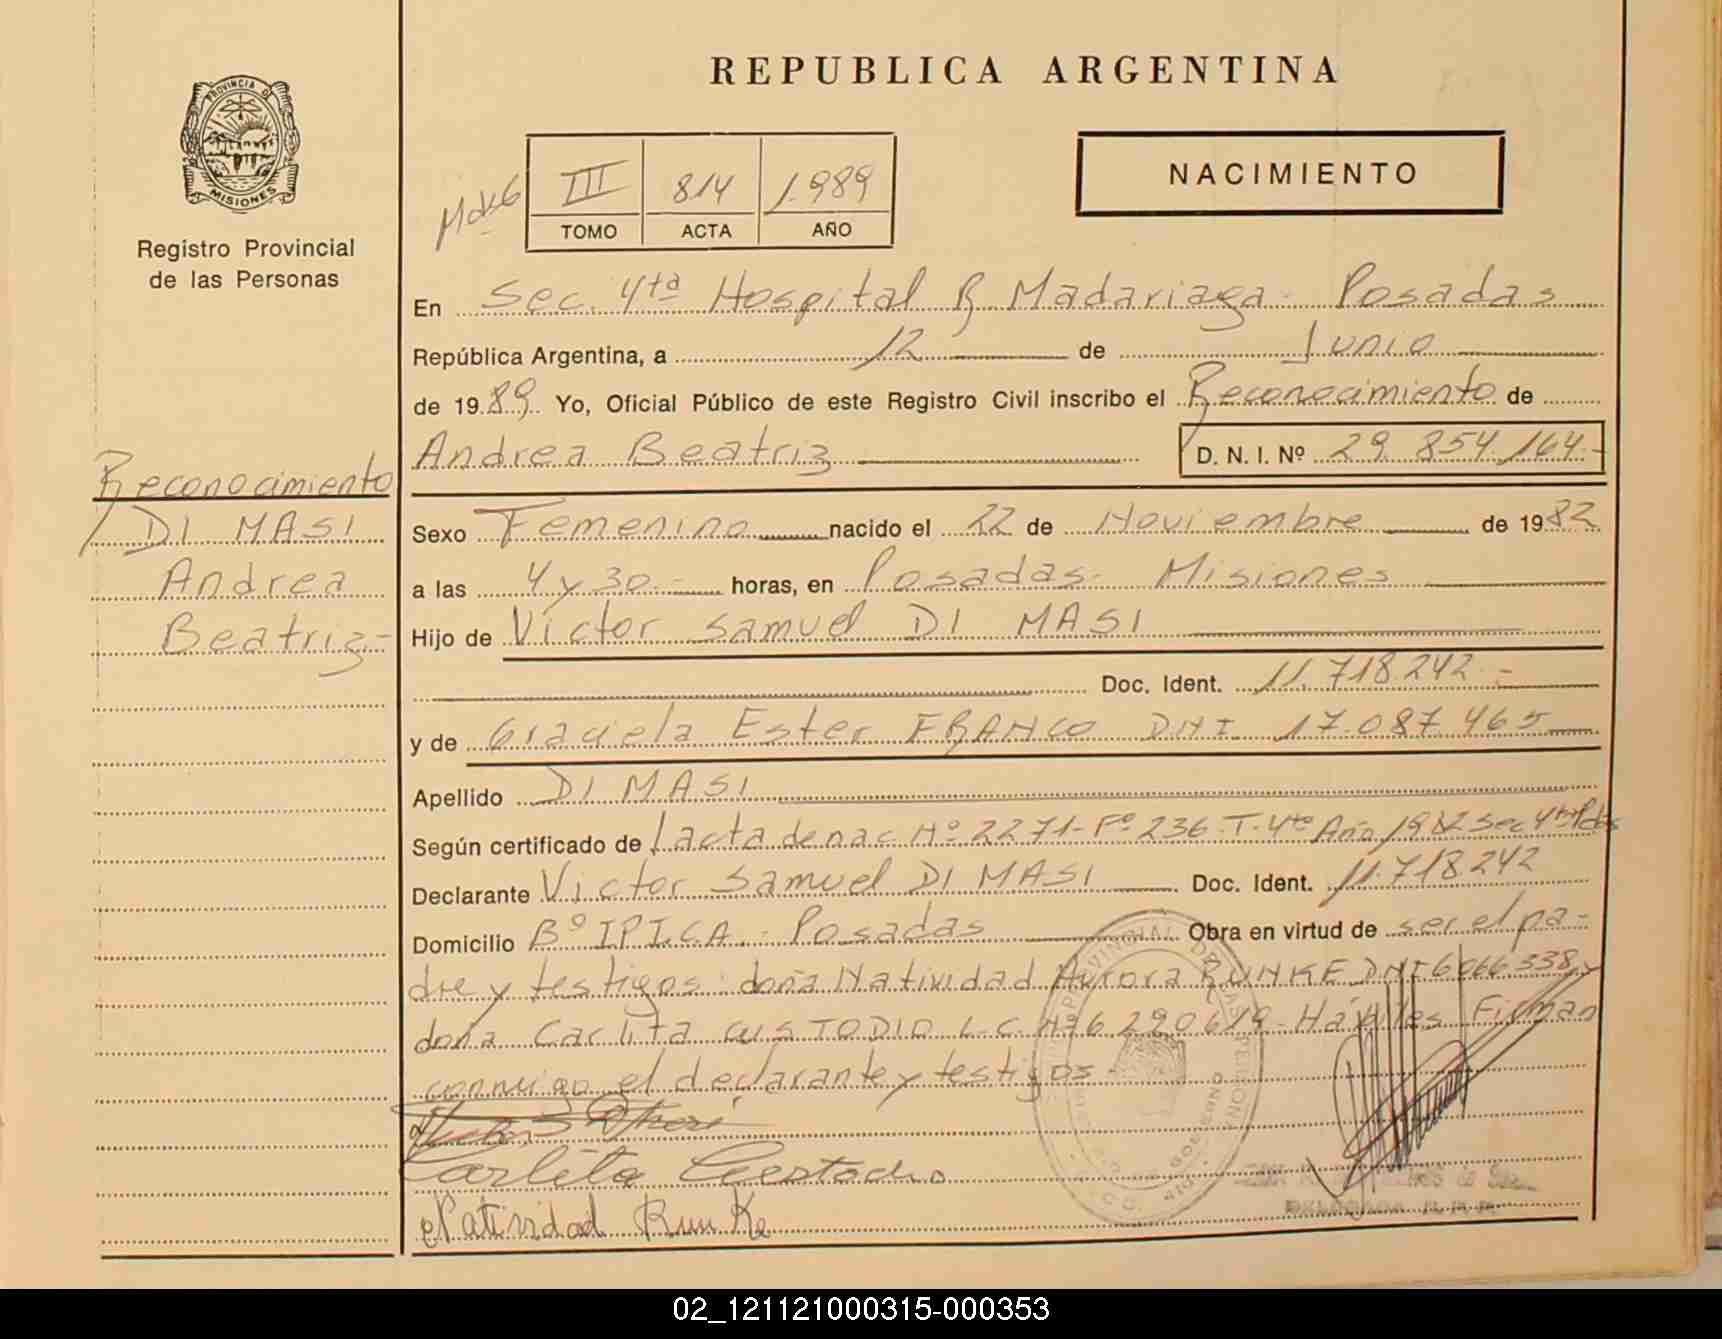 REPUBLICA ARGENTINA
PROVINCIA DE
MISIONES
Registro Provincial
de las Personas
III 814 1.989
TOMO ACTA AÑO
NACIMIENTO
En Sec. 4ta Hospital R Madariaga - Posadas
República Argentina, a 12 de Junio
de 1989 Yo, Oficial Público de este Registro Civil inscribo el Reconocimiento de
Andrea Beatriz D. N. I. Nº 29.854.164.-
Reconocimiento
DI MASI
Andrea
Beatriz-
Sexo Femenino nacido el 22 de Noviembre de 1982
a las 4 y 30.- horas, en Posadas- Misiones
Hijo de Victor Samuel DI MASI
Doc. Ident. 11.718.242.-
y de Graciela Ester FRANCO DNI 17.087.465
Apellido DI MASI
Según certificado de acta de nac Nº 2271- Fº 236- T- 4to Año 1982 Sec 4ta Pdas
Declarante Victor Samuel DI MASI Doc. Ident. 11.718.242
Domicilio Bº IPICA - Posadas Obra en virtud de ser el pa-
dre y testigos: doña Natividad Aurora RUNKE DNI 6066338 y
doña Carlita CUSTODIO L.C. Nº 6290619- Hábiles Firman
conmigo el declarante y testigos-
Carlita Custodio
Natividad Runke
02_121121000315-000353